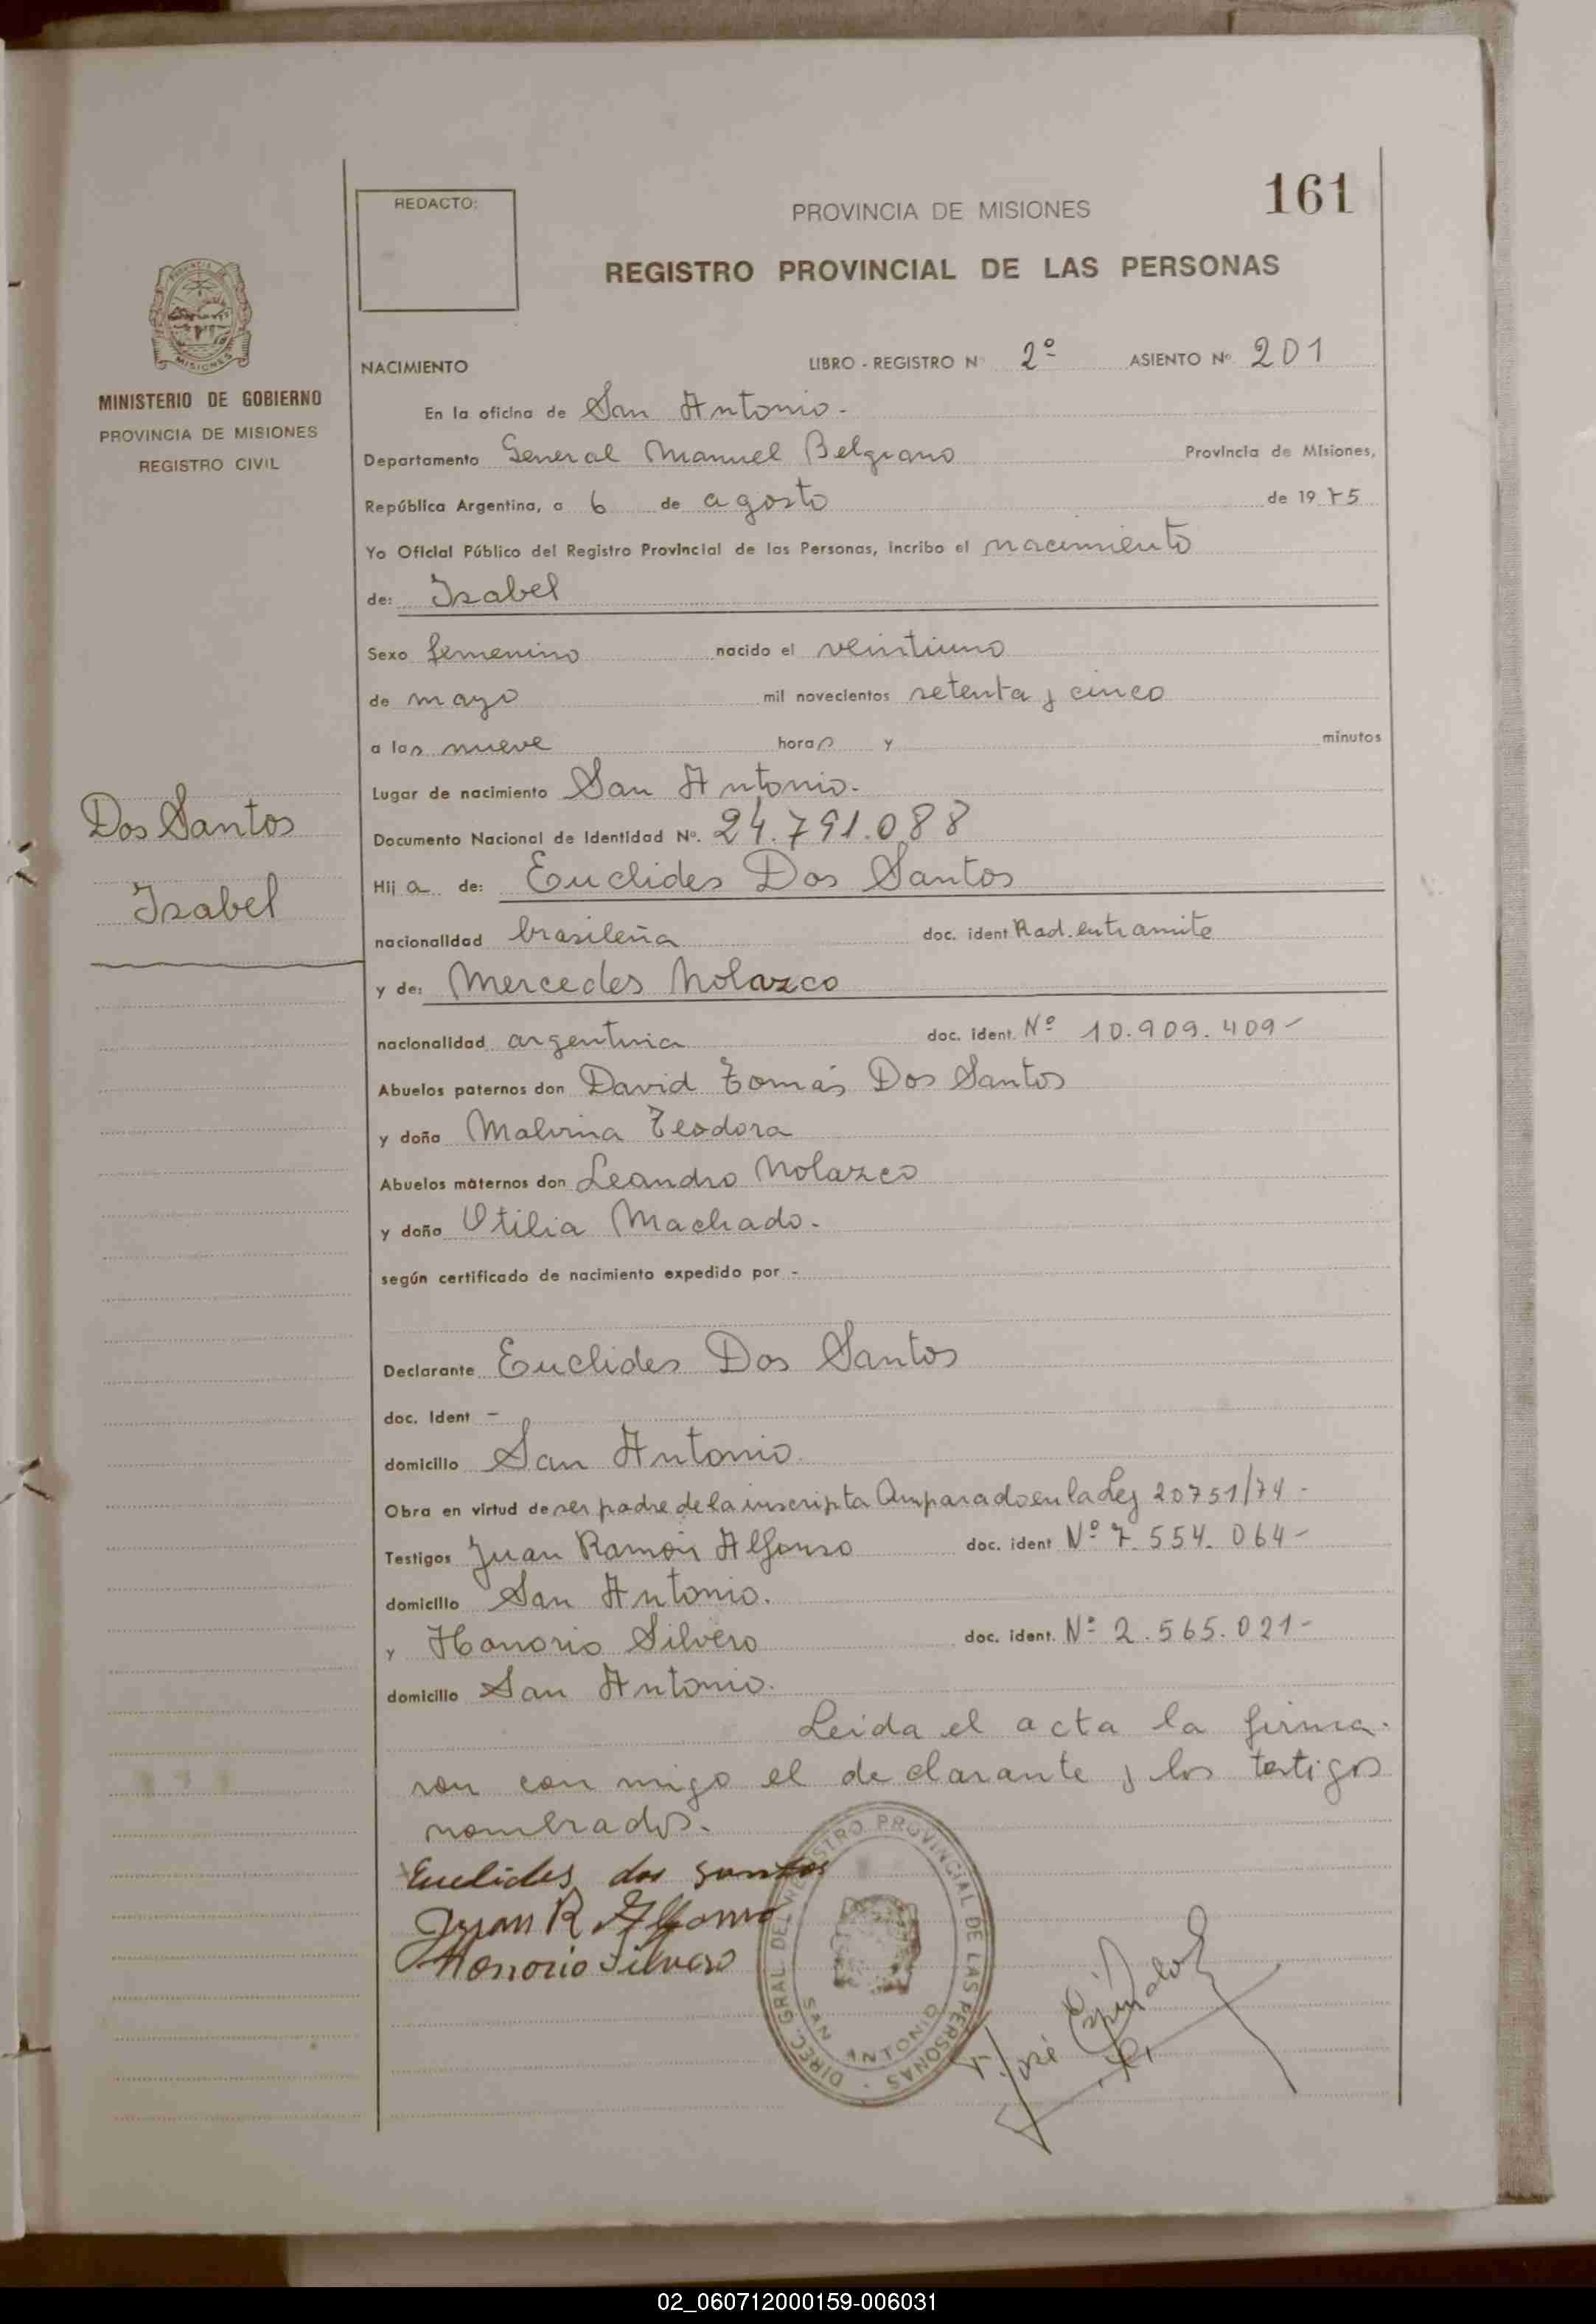 161
REDACTO:
PROVINCIA DE MISIONES
REGISTRO PROVINCIAL DE LAS PERSONAS
MISIONES
MINISTERIO DE GOBIERNO
PROVINCIA DE MISIONES
REGISTRO CIVIL
NACIMIENTO LIBRO - REGISTRO Nº 2º ASIENTO Nº 201
En la oficina de San Antonio.
Departamento General Manuel Belgrano Provincia de Misiones,
República Argentina, a 6 de agosto de 1975
Yo Oficial Público del Registro Provincial de las Personas, incribo el nacimiento
de: Isabel
Sexo femenino nacido el veintiuno
de mayo mil novecientos setenta y cinco
a las nueve horas y minutos
Lugar de nacimiento San Antonio.
Dos Santos
Isabel
Documento Nacional de Identidad Nº. 24.791.088
Hija de: Euclides Dos Santos
nacionalidad brasileña doc. ident Rad. en tramite
y de: Mercedes Nolazco
nacionalidad argentina doc. ident. Nº 10.909.409-
Abuelos paternos don David Tomás Dos Santos
y doña Malvina Teodora
Abuelos maternos don Leandro Nolazco
y doña Otilia Machado.
según certificado de nacimiento expedido por -
Declarante Euclides Dos Santos
doc. Ident -
domicilio San Antonio
Obra en virtud de ser padre de la inscripta Amparado en la Ley 20751/74 -
Testigos Juan Ramón Alfonso doc. ident Nº 7.554.064-
domicilio San Antonio.
y Honorio Silvero doc. ident. Nº 2.565.021-
domicilio San Antonio.
Leida el acta la firma-
ron con migo el declarante y los testigos
nombrados.
Euclides dos santos
Juan R Alfonso
Honorio Silvero
DIREC. GRAL. DEL REGISTRO PROVINCIAL DE LAS PERSONAS - SAN ANTONIO
José Espíndola
02_060712000159-006031